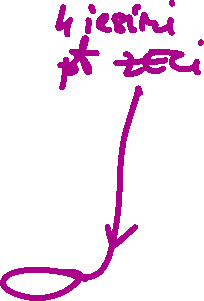 4 ieșiri
pt ZECI